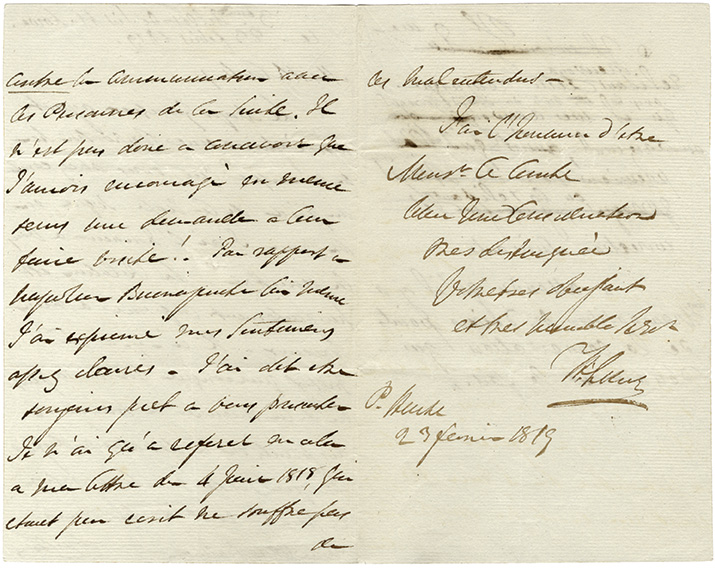 contre la communication avec
les Personnes de la Suite. Il
n'est pas donc a concevoir que
J'aurois encouragé en meme
tems une demande a leur
faire visite! Par rapport a
Napoleon Buonaparte lui même
J'ai exprimé mes sentimens
assez claires - J'ai dit être
toujours pret a vous presenter
Je n'ai qu'a referer
a ma lettre du 4 Juin 1818, qui
etant par ecrit ne souffre pas
de
les malentendus -
J'ai l'honneur d'etre
Monsr. le Comte
avec une Consideration
tres distinguée
Votre tres obeissant
et tres humble Servr.
H: Lowe
Pn. House
23 fevrier 1819